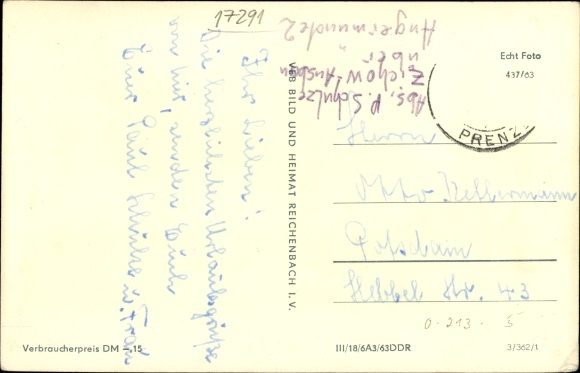 17291
Ihr Lieben!
Die herzlichsten Urlaubsgrüße
von hier, senden Euch
Euer Paul Schulze u. Frau
Abs. P. Schulze
Zichow-Ausbau
über
Angermünde 2
VEB BILD UND HEIMAT REICHENBACH I. V.
Echt Foto
437/63
PRENZ
Herrn
Otto Kellermann
Potsdam
Hebbel Str. 43
0-213- S
Verbraucherpreis DM -.15
III/18/6A3/63DDR
3/362/1